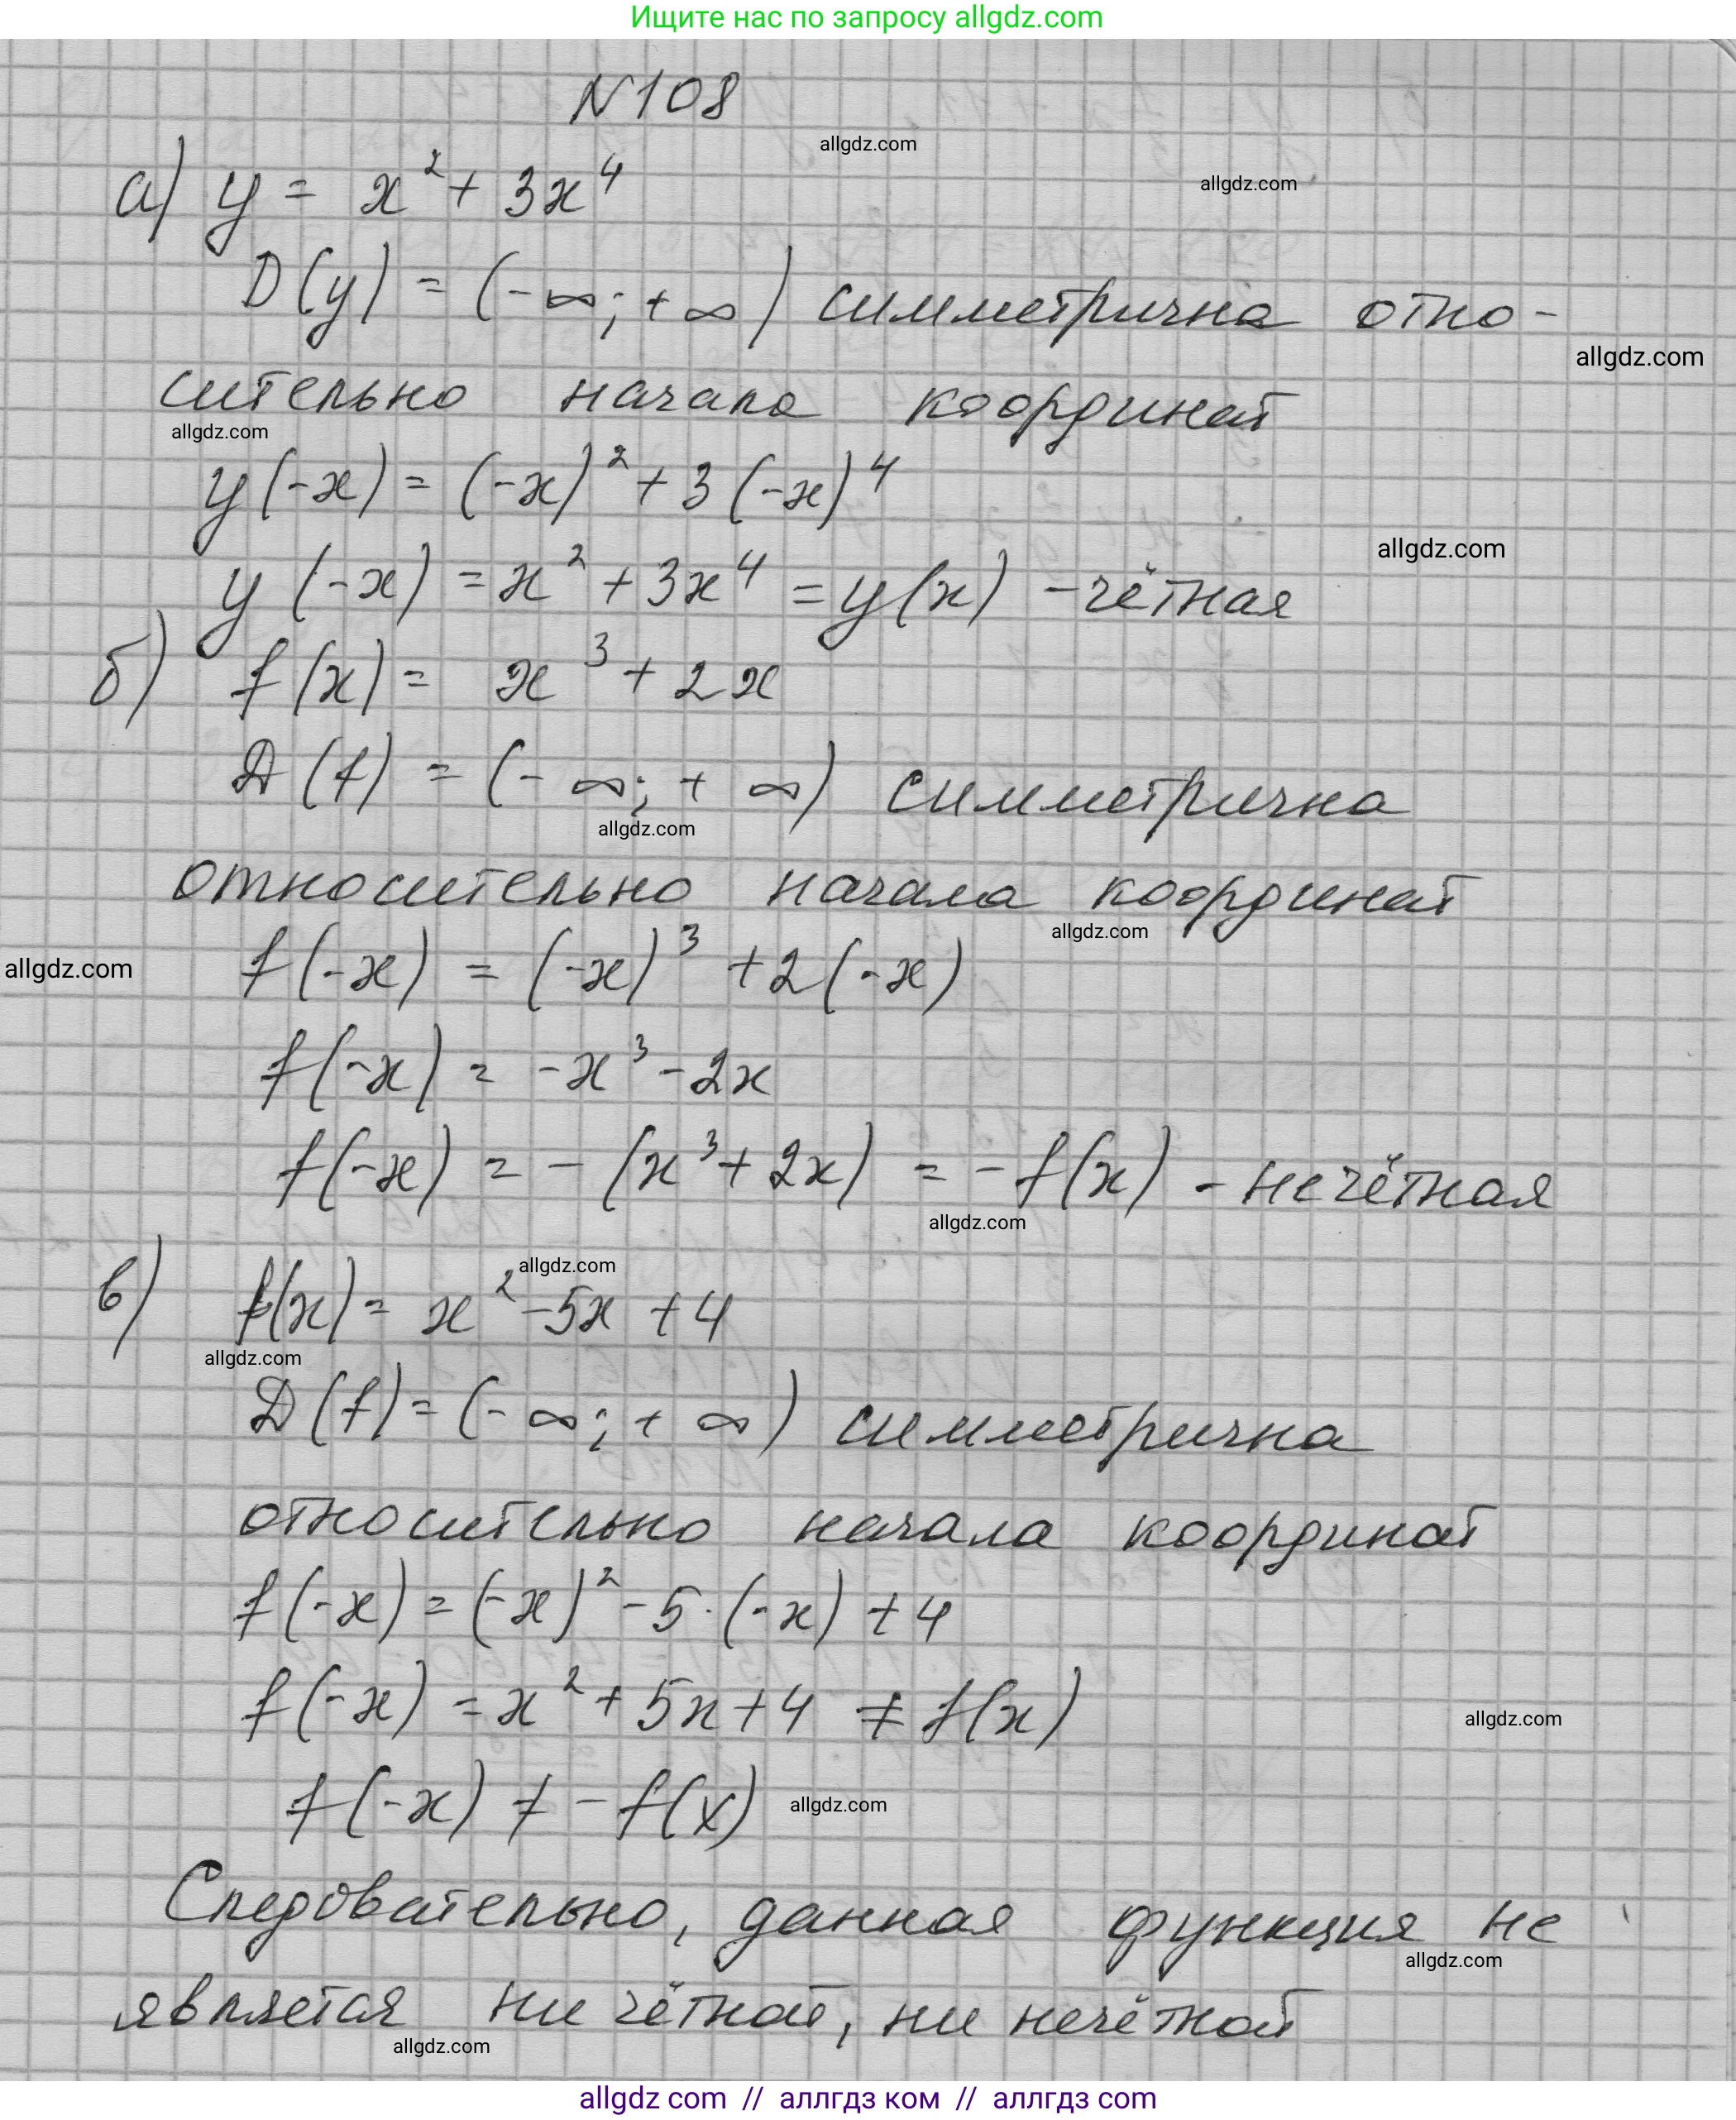 Ищите нас по запросу allgdz.com
N108
allgdz.com
allgdz.com
а) y = x² + 3x⁴
D(y) = (-∞; +∞) симметрична отно-
allgdz.com
сительно начала координат
allgdz.com
y(-x) = (-x)² + 3(-x)⁴
allgdz.com
y(-x) = x² + 3x⁴ = y(x) - чётная
б) f(x) = x³ + 2x
D(f) = (-∞; +∞) симметрична
allgdz.com
относительно начала координат
allgdz.com
allgdz.com
f(-x) = (-x)³ + 2(-x)
f(-x) = -x³ - 2x
f(-x) = -(x³ + 2x) = -f(x) - нечётная
allgdz.com
allgdz.com
в) f(x) = x² - 5x + 4
allgdz.com
D(f) = (-∞; +∞) симметрична
относительно начала координат
f(-x) = (-x)² - 5·(-x) + 4
f(-x) = x² + 5x + 4 ≠ f(x)
allgdz.com
f(-x) ≠ -f(x)
allgdz.com
Следовательно, данная функция не
allgdz.com
является ни чётной, ни нечётной
allgdz.com
allgdz com // аллгдз ком // аллгдз com